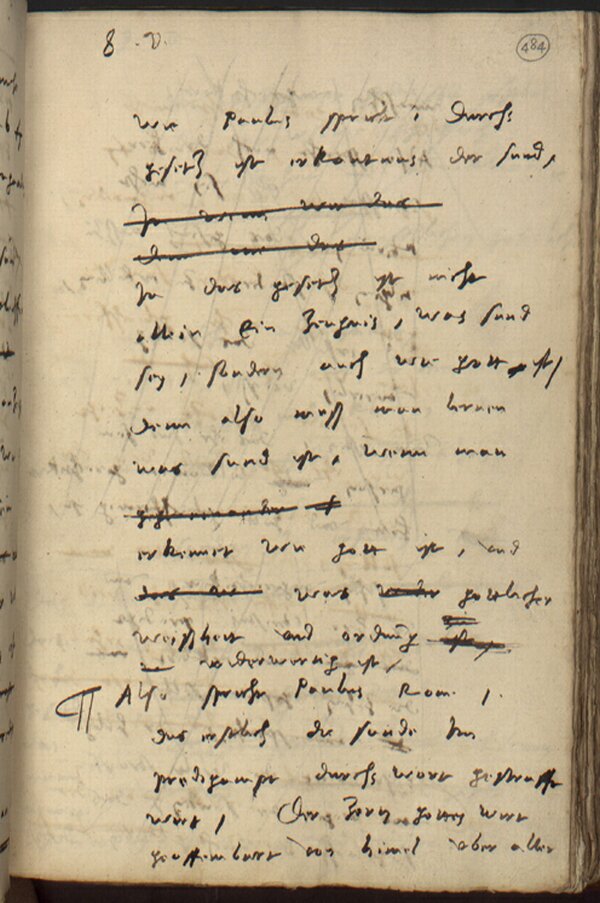 8 .V.
484
wie Paulus spricht, durchs
gesetz ist erkantnus der sund,
In dem gesetz ist nicht
allein ein zeugnis, was sund
sey, sondern auch wie gott ist,
denn also muss man lernen
was sund ist, wenn man
erkennet wie gott ist, und
was gottlicher
weissheit und ordnung
widerwertig ist,
Also spricht Paulus Rom. 1.
das erstlich die sunde im
predigampt durchs wort gestrafft
wirt, Der zorn gottes wirt
geoffenbart von himel uber alle